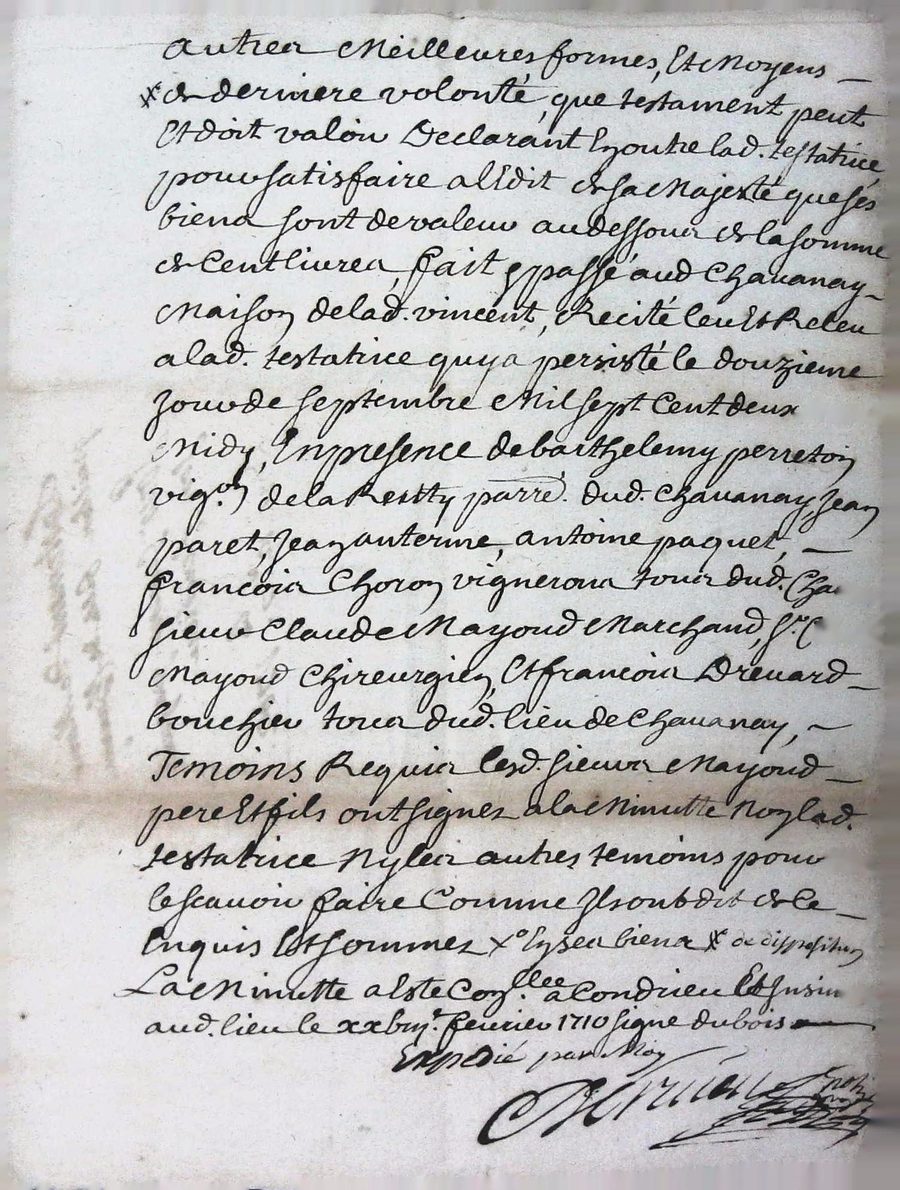 autres Meilleures formes, Et Moyens
x de derniere volonté, que testament peut
Et doit valoir Declarant Enoutre lad. testatrice
pour satisfaire a l'Edit de sa Majesté que ses
biens sont de valeur au dessous de la somme
de Cent livres, fait & passé aud Chavanay
Maison de lad. vincent, Recité leu Et Releu
a lad. testatrice quy a persisté le douzieme
Jour de septembre Mil sept Cent deux
Midy, En presence de barthelemy perreton
vig.on de la Pestty parre. dud. Chavanay, Jean
paret, Jean anterme, antoine paquet,
françois Choron vignerons tous dud. Cha
sieur Claude Mayoud Marchand, Sr. C
Mayoud Chireurgien, Et françois Drevard
bouchier tous dud. lieu de Chavanay,
Temoins Requis lesd. sieurs Mayoud
pere Et fils ont signez a la Minutte Non lad.
testatrice Ny les autres temoins pour
le scavoir faire Comme Ils ont dit de ce
Enquis Et sommez xo En ses biens x de disposition
La Minutte a Este Con.llee a Condrieu Et Insin
aud. lieu le xxbiij.e fevrier 1710 signe dubois
Expedié par Moy